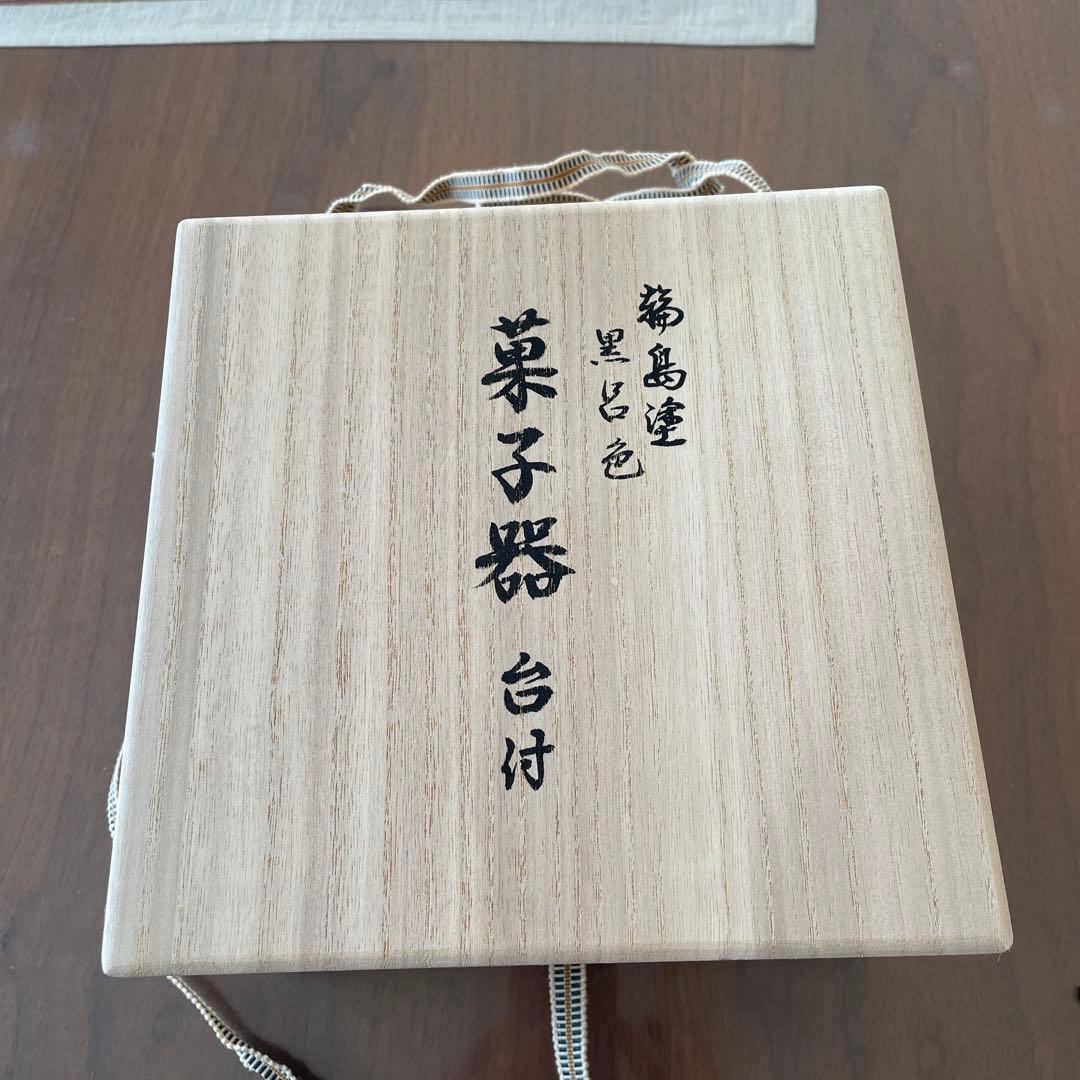 輪島塗
黒呂色
菓子器 台付